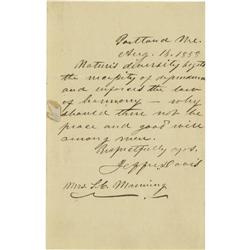 Portland Me.
Aug. 16. 1858
Nature's diversity begets
the necessity of dependence
and enforces the law
of harmony – why
should there not be
peace and good will
among men.
Respectfully yrs.
Jeffer. Davis
Mrs. L. C. Manning